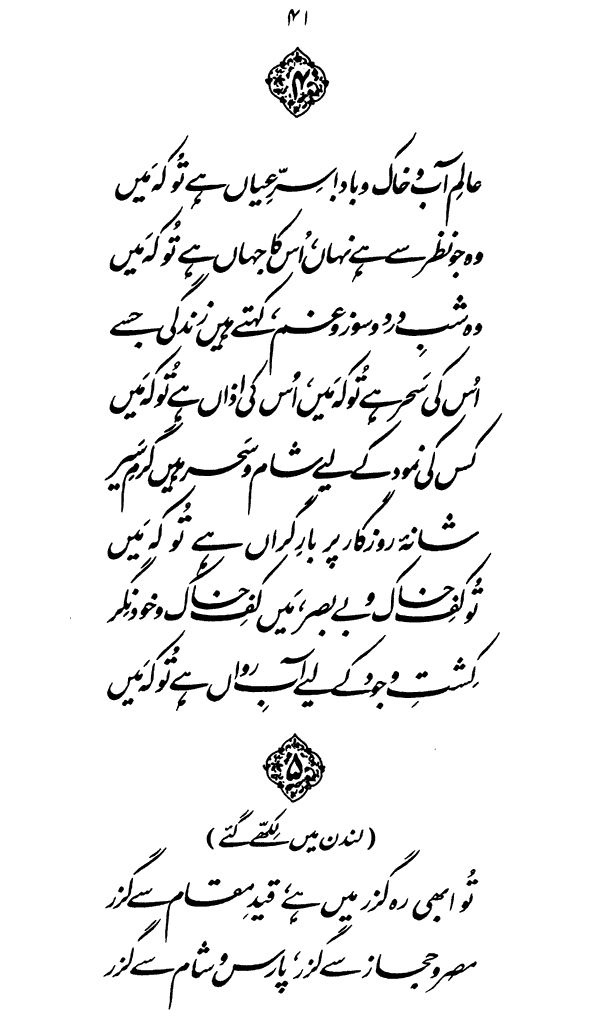 ۴۱
۴
عالمِ آب و خاک و باد! سِرِّ عیاں ہے تُو کہ مَیں
وہ جو نظر سے ہے نہاں، اُس کا جہاں ہے تُو کہ مَیں
وہ شبِ درد و سوز و غم، کہتے ہیں زندگی جسے
اُس کی سَحر ہے تُو کہ مَیں، اُس کی اذاں ہے تُو کہ مَیں
کس کی نمود کے لیے شام و سَحر ہیں گرمِ سَیر
شانۂ روزگار پر بارِ گراں ہے تُو کہ مَیں
تُو کفِ خاک و بے بصر، مَیں کفِ خاک و خودنِگر
کِشتِ وجود کے لیے آبِ رواں ہے تُو کہ مَیں
۵
(لندن میں لِکھّے گئے)
تُو ابھی رہ گزر میں ہے، قیدِ مقام سے گزر
مصر و حجاز سے گزر، پارس و شام سے گزر